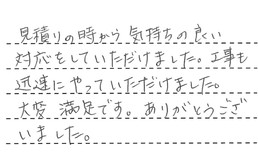 見積りの時から気持ちの良い
対応をしていただけました。工事も
迅速にやっていただけました。
大変満足です。ありがとうござ
いました。